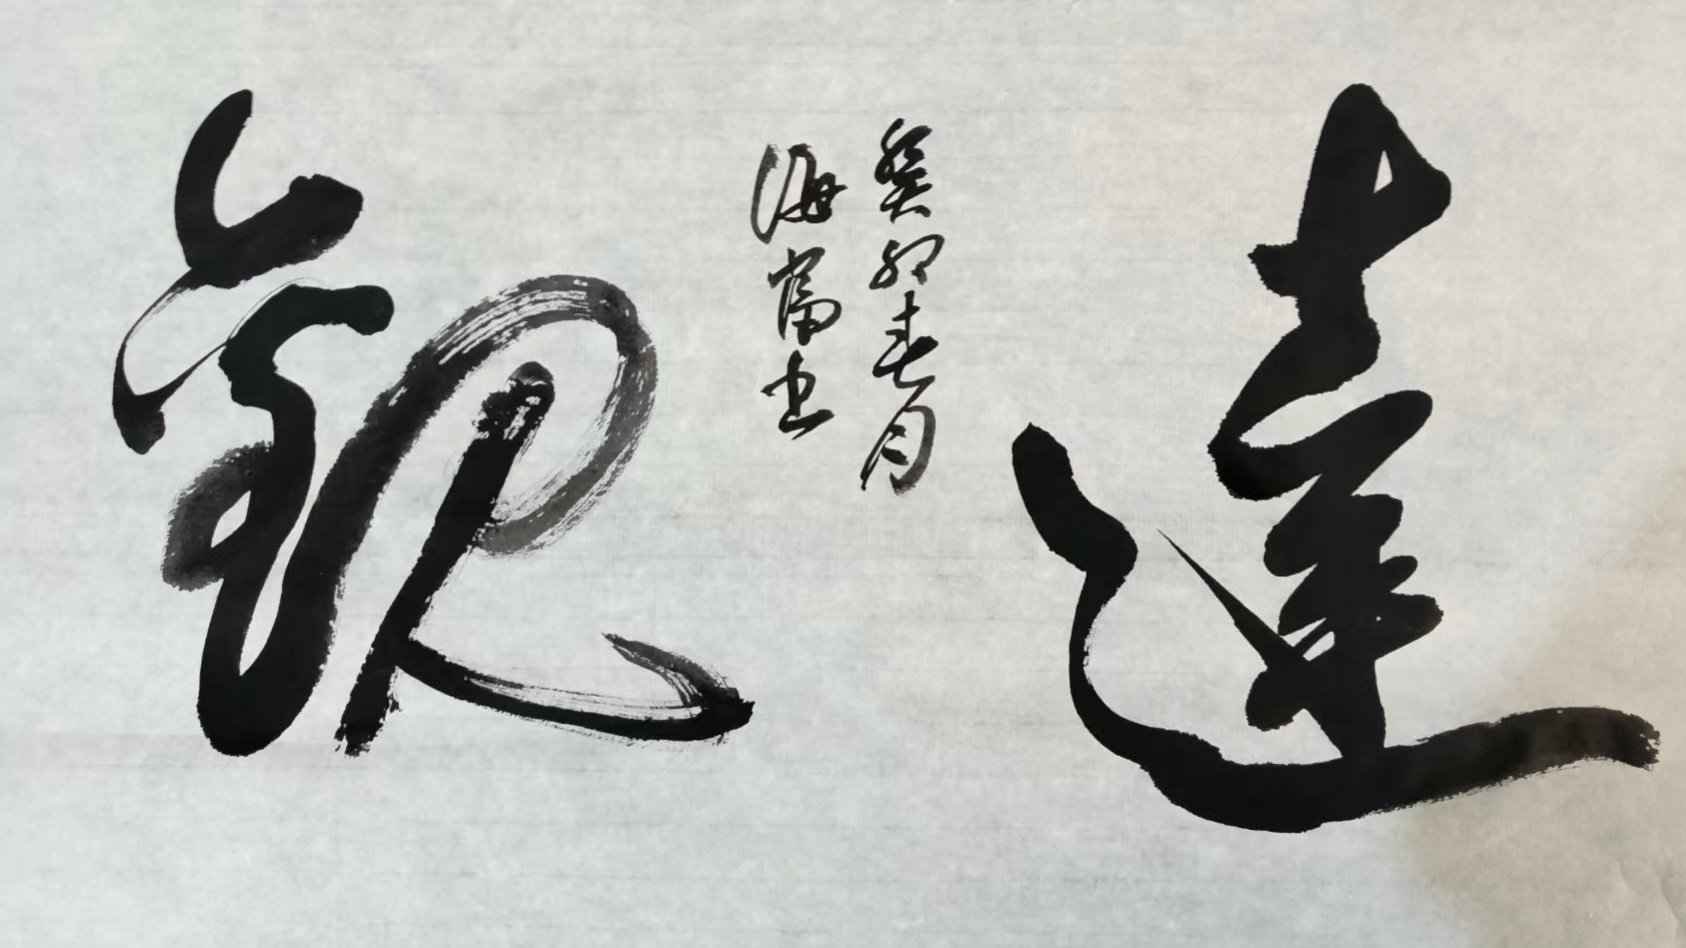 達觀
癸卯春月
海富书